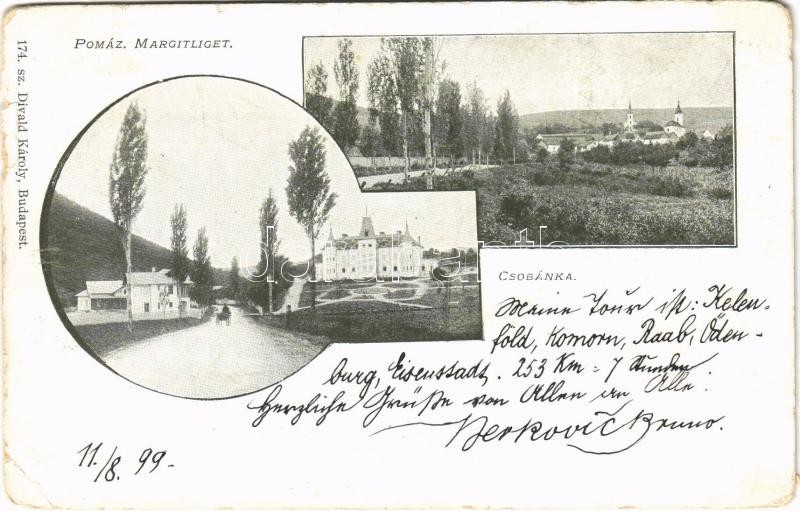 POMÁZ. MARGITLIGET.
174. sz. Divald Károly, Budapest.
CSOBÁNKA.
Meine Tour ist: Kelen-
föld, Komorn, Raab, Öden-
burg, Eisenstadt. 253 Km = 7 Stunden
Herzliche Grüße von Allen an Alle.
Berkovič Bruno.
11./8. 99.
darabanth